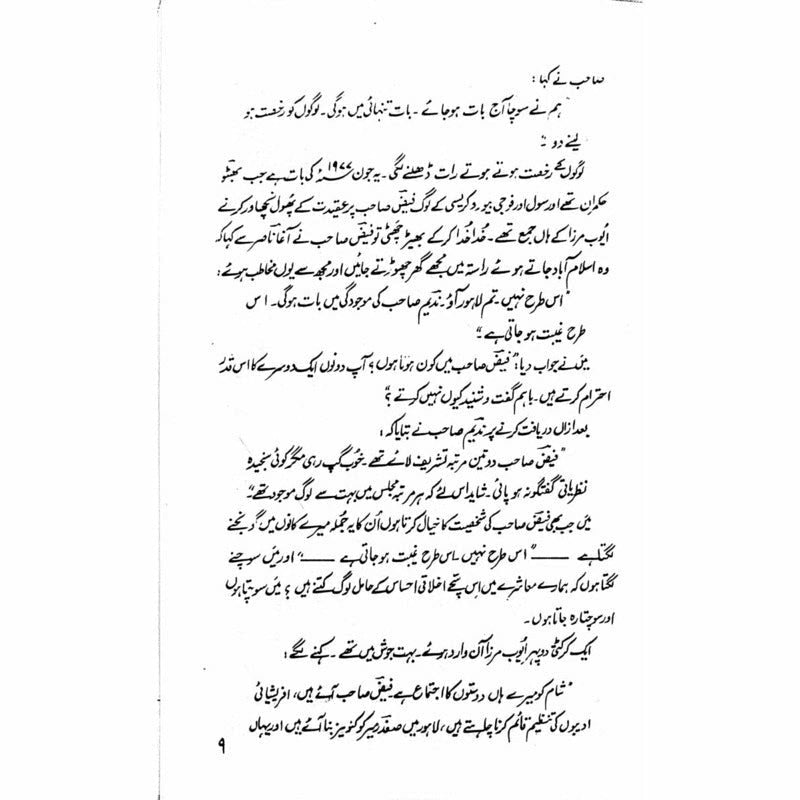 صاحب نے کہا :
"ہم نے سوچا آج بات ہو جائے ۔ بات تنہائی میں ہوگی ۔ لوگوں کو رخصت ہو
لینے دو "۔
لوگوں کے رخصت ہوتے ہوتے رات ڈھلنے لگی ۔ یہ جون ۱۹۷۷ء کی بات ہے جب بھٹو
حکمران تھے اور سول اور فوجی بیوروکریسی کے لوگ فیض صاحب پر عقیدت کے پھول نچھاور کرنے
ایوب مرزا کے ہاں جمع تھے ۔ خدا خدا کر کے بھیڑ چھٹی تو فیض صاحب نے آغا ناصر سے کہا کہ
وہ اسلام آباد جاتے ہوئے راستہ میں مجھے گھر چھوڑتے جائیں اور مجھ سے یوں مخاطب ہوئے :
"اس طرح نہیں ۔ تم لاہور آؤ ۔ ندیم صاحب کی موجودگی میں بات ہوگی ۔ اس
طرح غیبت ہو جاتی ہے "۔
میں نے جواب دیا : "فیض صاحب میں کون ہوتا ہوں ؟ آپ دونوں ایک دوسرے کا اس قدر
احترام کرتے ہیں ۔ باہم گفت و شنید کیوں نہیں کرتے ؟"
بعد ازاں دریافت کرنے پر ندیم صاحب نے بتایا کہ :
"فیض صاحب دو تین مرتبہ تشریف لائے تھے ۔ خوب گپ رہی مگر کوئی سنجیدہ
نظریاتی گفتگو نہ ہو پائی ۔ شاید اس لئے کہ ہر مرتبہ مجلس میں بہت سے لوگ موجود تھے "۔
میں جب بھی فیض صاحب کی شخصیت کا خیال کرتا ہوں اُن کا یہ جملہ میرے کانوں میں گونجنے
لگتا ہے ——— "اس طرح نہیں ۔ اس طرح غیبت ہو جاتی ہے ———" اور میں سوچنے
لگتا ہوں کہ ہمارے معاشرے میں اس سچے اخلاقی احساس کے حامل لوگ کتنے ہیں ؟ میں سوچتا ہوں
اور سوچتا رہ جاتا ہوں ۔
ایک کڑکتی دوپہر ایوب مرزا آن وارد ہوئے ۔ بہت جوش میں تھے ۔ کہنے لگے :
"شام کو میرے ہاں دوستوں کا اجتماع ہے فیض صاحب آئے ہیں، افریشیائی
ادیبوں کی تنظیم قائم کرنا چاہتے ہیں، لاہور میں صفدر میر کو کنوینر بنا آئے ہیں اور یہاں
۹